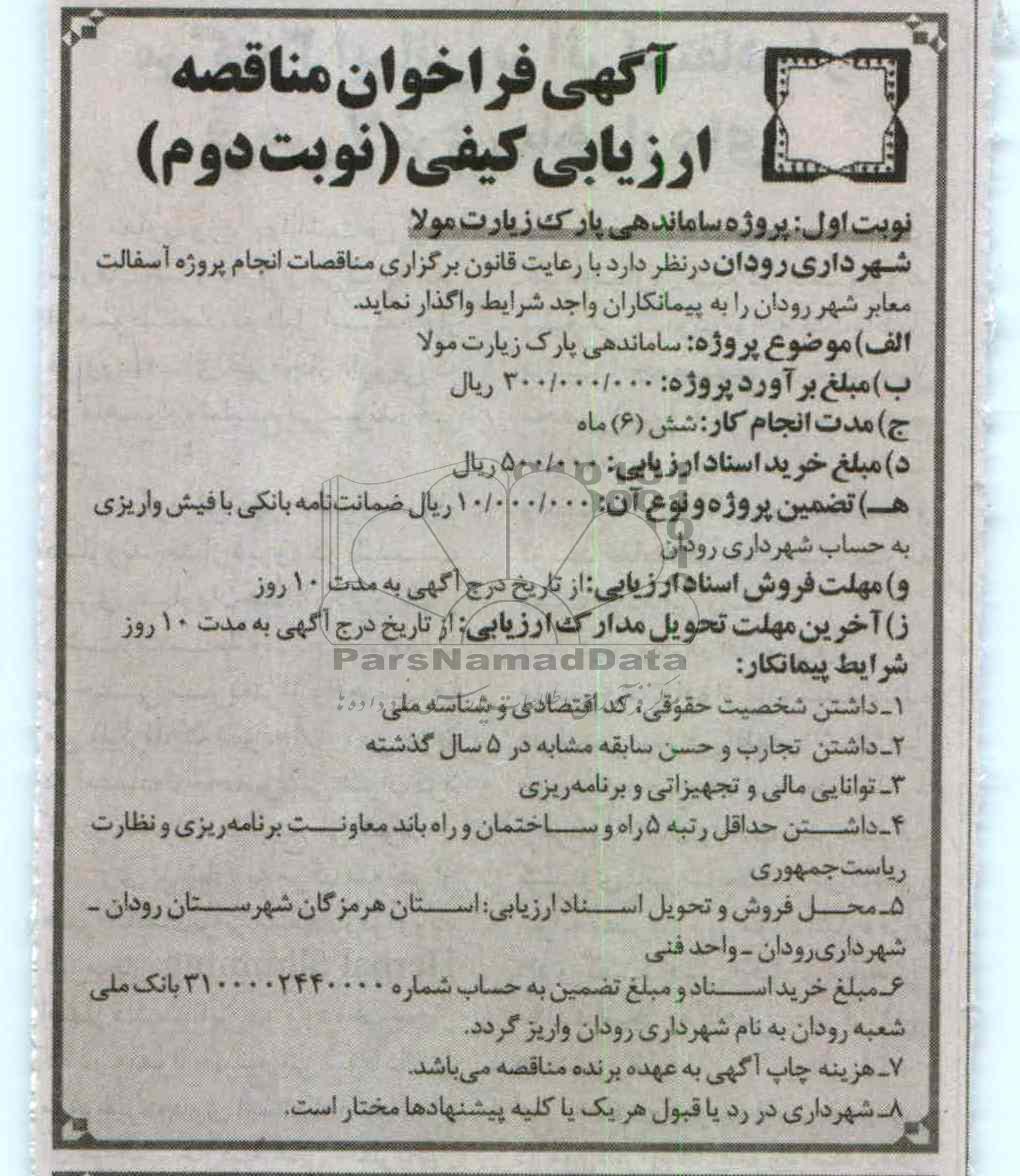 آگهی فراخوان مناقصه
ارزیابی کیفی (نوبت دوم)
نوبت اول: پروژه ساماندهی پارک زیارت مولا
شهرداری رودان درنظر دارد با رعایت قانون برگزاری مناقصات انجام پروژه آسفالت
معابر شهر رودان را به پیمانکاران واجد شرایط واگذار نماید.
الف) موضوع پروژه: ساماندهی پارک زیارت مولا
ب) مبلغ برآورد پروژه: ۳۰۰/۰۰۰/۰۰۰ ریال
ج) مدت انجام کار: شش (۶) ماه
د) مبلغ خرید اسناد ارزیابی: ۵۰۰/۰۰۰ ریال
هـ) تضمین پروژه و نوع آن: ۱۰/۰۰۰/۰۰۰ ریال ضمانت‌نامه بانکی با فیش واریزی
به حساب شهرداری رودان
و) مهلت فروش اسناد ارزیابی: از تاریخ درج آگهی به مدت ۱۰ روز
ز) آخرین مهلت تحویل مدارک ارزیابی: از تاریخ درج آگهی به مدت ۱۰ روز
ParsNamadData
شرایط پیمانکار:
۱ـ داشتن شخصیت حقوقی، کد اقتصادی و شناسه ملی
۲ـ داشتن تجارب و حسن سابقه مشابه در ۵ سال گذشته
۳ـ توانایی مالی و تجهیزاتی و برنامه‌ریزی
۴ـ داشتن حداقل رتبه ۵ راه و ساختمان و راه باند معاونت برنامه‌ریزی و نظارت
ریاست‌جمهوری
۵ـ محل فروش و تحویل اسناد ارزیابی: استان هرمزگان شهرستان رودان ـ
شهرداری‌رودان ـ واحد فنی
۶ـ مبلغ خرید اسناد و مبلغ تضمین به حساب شماره ۳۱۰۰۰۰۲۴۴۰۰۰۰ بانک ملی
شعبه رودان به نام شهرداری رودان واریز گردد.
۷ـ هزینه چاپ آگهی به عهده برنده مناقصه می‌باشد.
۸ـ شهرداری در رد یا قبول هر یک یا کلیه پیشنهادها مختار است.